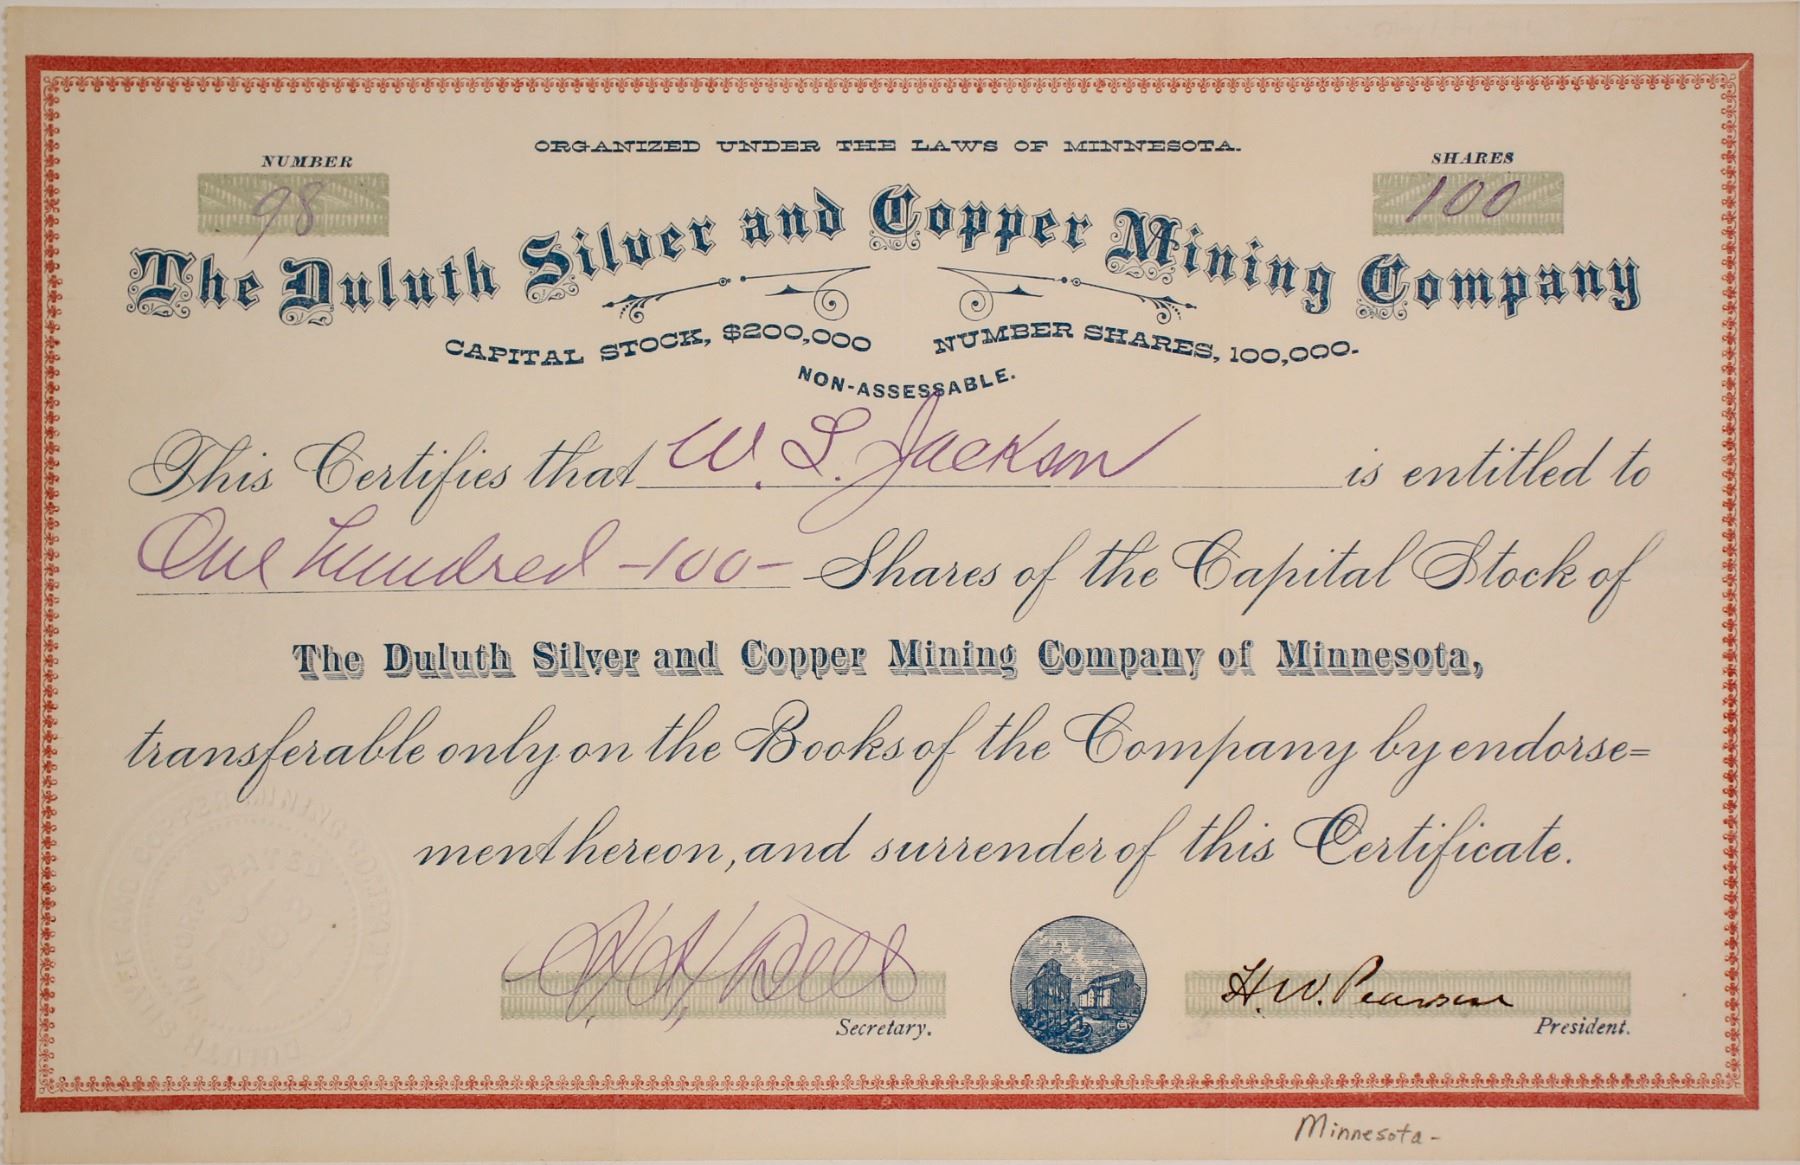 ORGANIZED UNDER THE LAWS OF MINNESOTA.
NUMBER
98
SHARES
100
The Duluth Silver and Copper Mining Company
CAPITAL STOCK, $200,000 NUMBER SHARES, 100,000.
NON-ASSESSABLE.
This Certifies that W. S. Jackson is entitled to
One hundred -100- Shares of the Capital Stock of
The Duluth Silver and Copper Mining Company of Minnesota,
transferable only on the Books of the Company by endorse=
ment hereon, and surrender of this Certificate.
DULUTH SILVER AND COPPER MINING COMPANY
INCORPORATED
Secretary.
H. W. Pearson
President.
Minnesota-